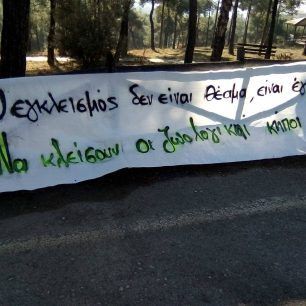 Ο εγκλεισμός δεν είναι θέαμα, είναι έγ
Να κλείσουν οι ζωολογικοί κήποι